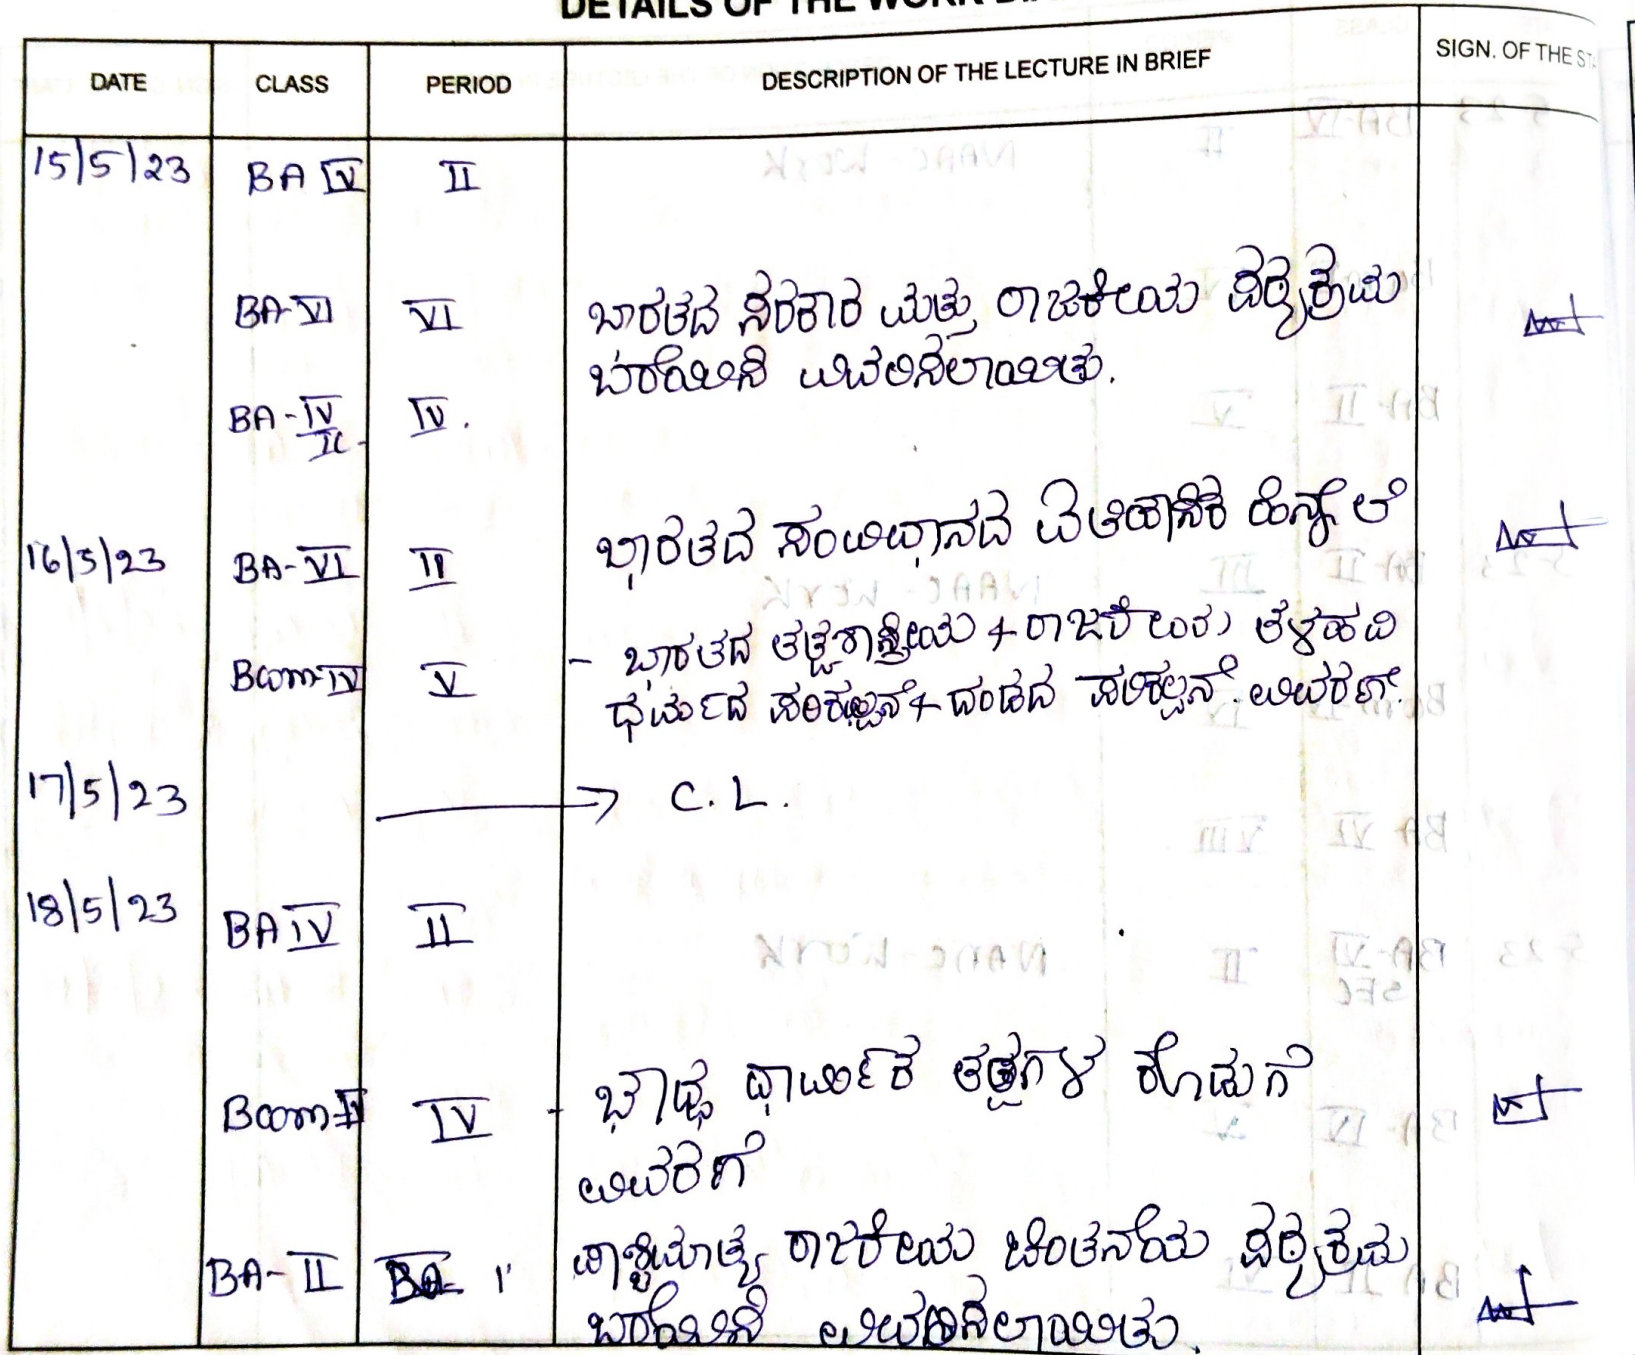 DETAILS OF THE WORK
DATE CLASS PERIOD DESCRIPTION OF THE LECTURE IN BRIEF SIGN. OF THE ST
15/5/23 BA IV II
BA-VI VI ಭಾರತದ ಸರಕಾರ ಮತ್ತು ರಾಜಕೀಯ ಪಠ್ಯಕ್ರಮ
ಬರೆಯಿಸಿ ವಿವರಿಸಲಾಯಿತು.
BA-IV IV.
II
16/5/23 BA-VI II ಭಾರತದ ಸಂವಿಧಾನದ ಐತಿಹಾಸಿಕ ಹಿನ್ನೆಲೆ
Bcom-IV V - ಭಾರತದ ತತ್ವಶಾಸ್ತ್ರೀಯ + ರಾಜಕೀಯ ತಳಹದಿ
ಧರ್ಮದ ಪರಿಕಲ್ಪನೆ + ದಂಡದ ಪರಿಕಲ್ಪನೆ. ವಿವರಣೆ.
17/5/23 → C.L.
18/5/23 BA IV II
Bcom-IV IV - ಬೌದ್ಧ ಧಾರ್ಮಿಕ ತತ್ವಗಳ ಕೊಡುಗೆ
ವಿವರಣೆ
BA-II ಪಾಶ್ಚಿಮಾತ್ಯ ರಾಜಕೀಯ ಚಿಂತನೆಯ ಪಠ್ಯಕ್ರಮ
ಬರೆಯಿಸಿ ವಿವರಿಸಲಾಯಿತು.